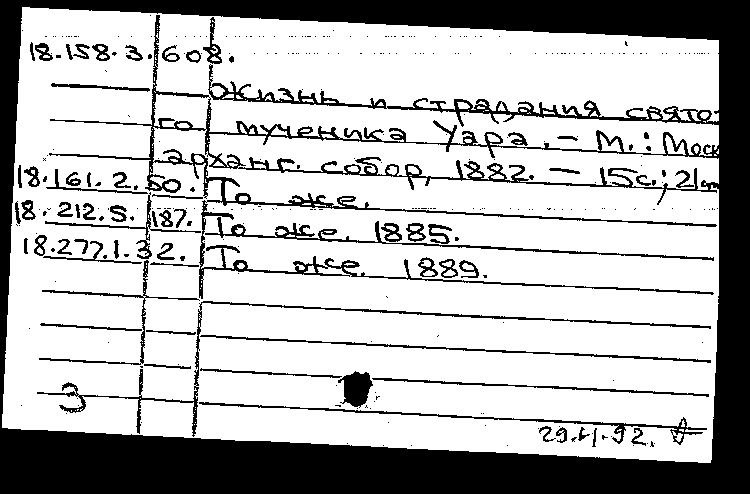 18.158.3.608.
Жизнь и страдания свято-
го мученика Уара. – М.: Моск
арханг. собор, 1882. – 15с.; 21см
18.161.2.50. То же.
18.212.5.187. То же. 1885.
18.277.1.32. То же. 1889.
3
92.